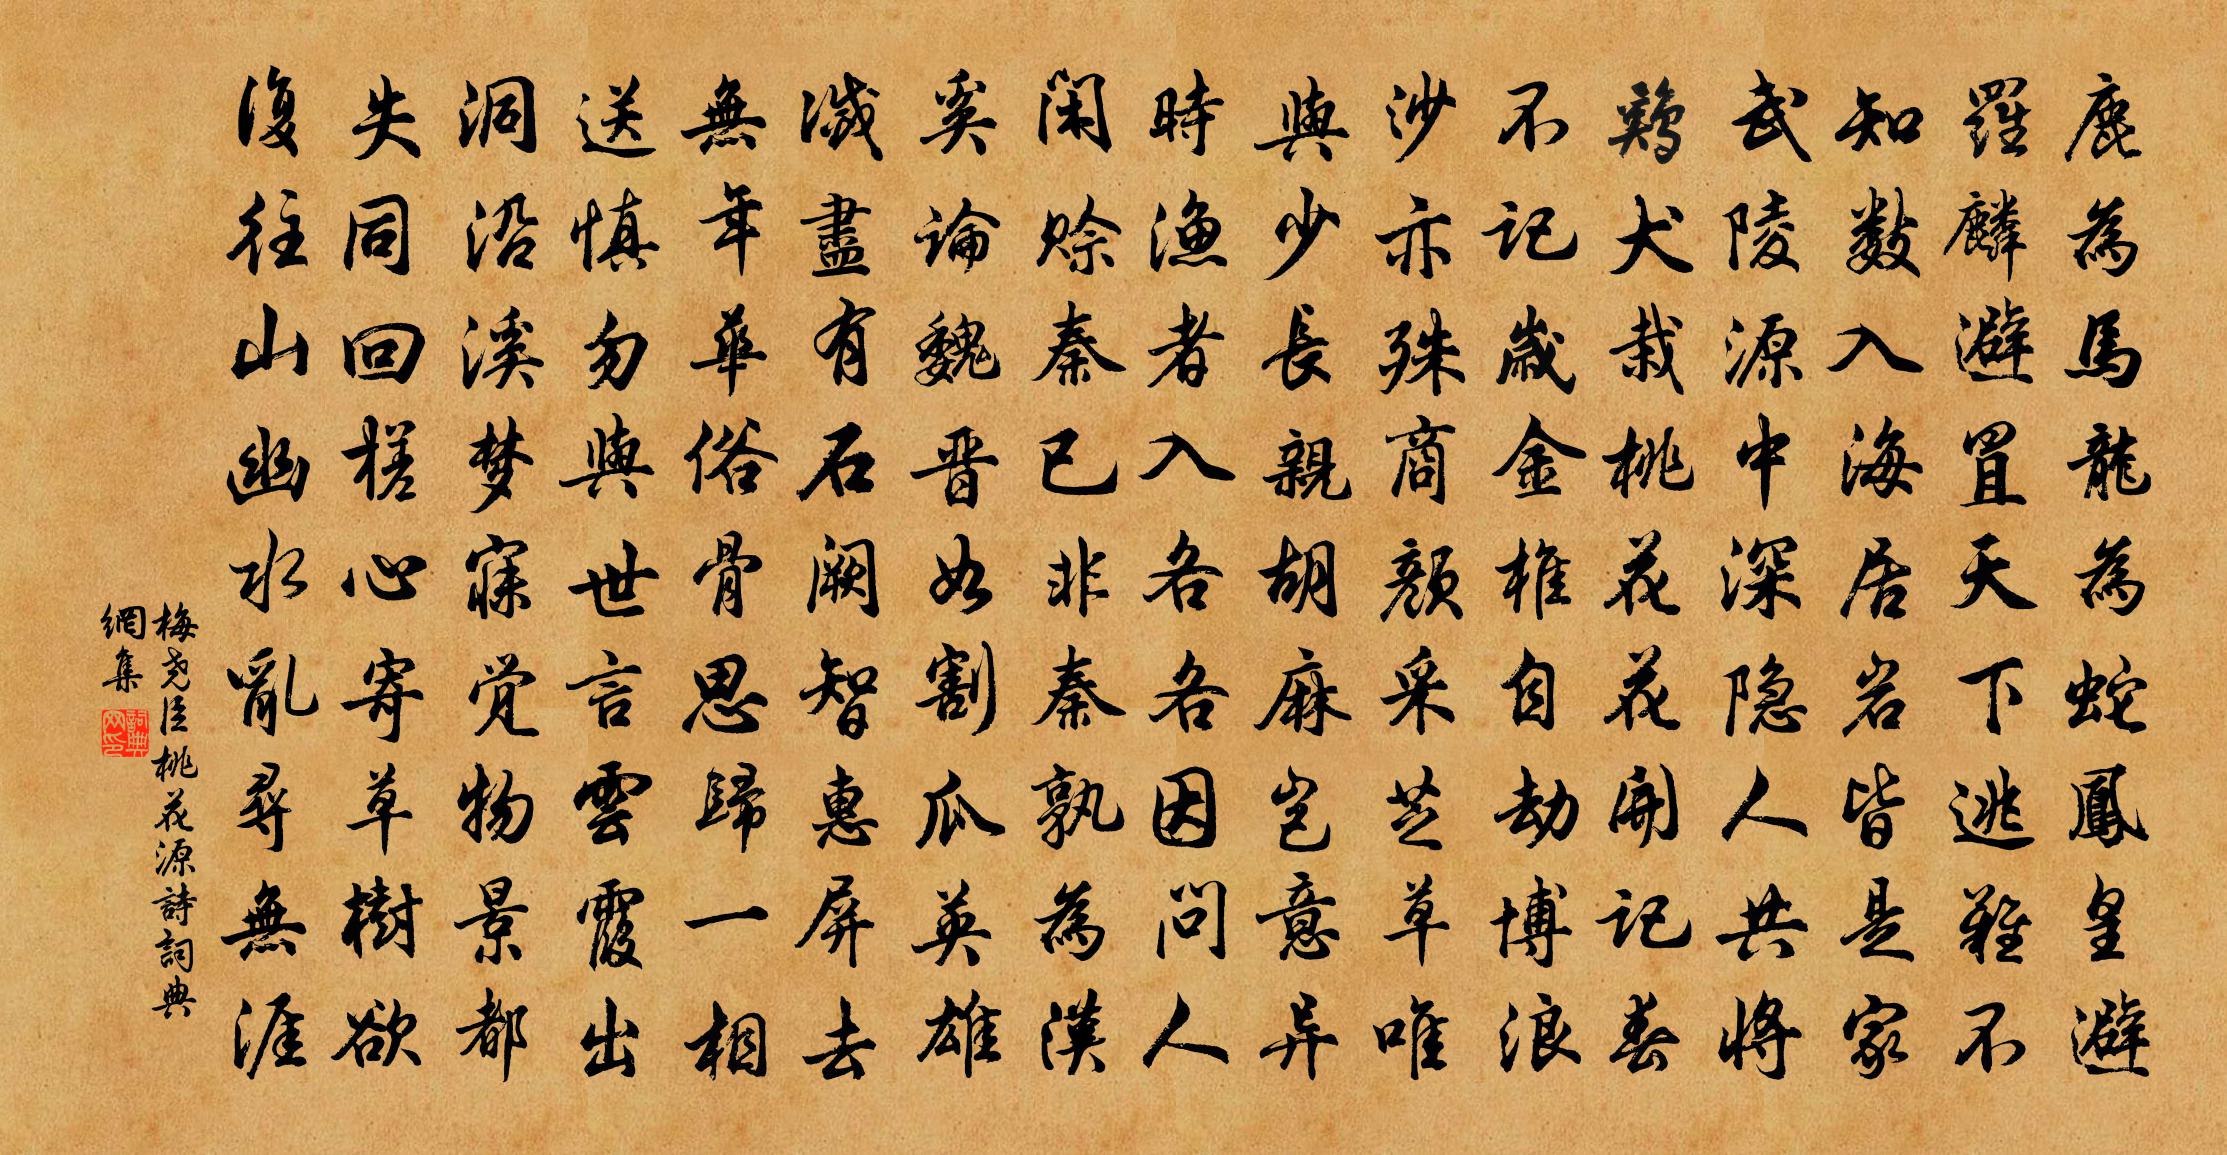 鹿為馬龍為蛇鳳皇避
羅麟避罝天下逃難不
知數入海居岩皆是家
武陵源中深隐人共將
鷄犬栽桃花花開記春
不記歲金椎自劫博浪
沙亦殊商顏采芝草唯
與少長親胡麻岂意异
時渔者入各各因問人
閑賒秦已非秦孰為漢
奚論魏晋如割瓜英雄
滅盡有石阙智惠屏去
無年華俗骨思歸一相
送慎勿與世言雲霞出
洞沿溪梦寐觉物景都
失同回槎心寄草樹欲
復往山幽水亂尋無涯
梅尧臣桃花源詩詞典
網集
詞典网印